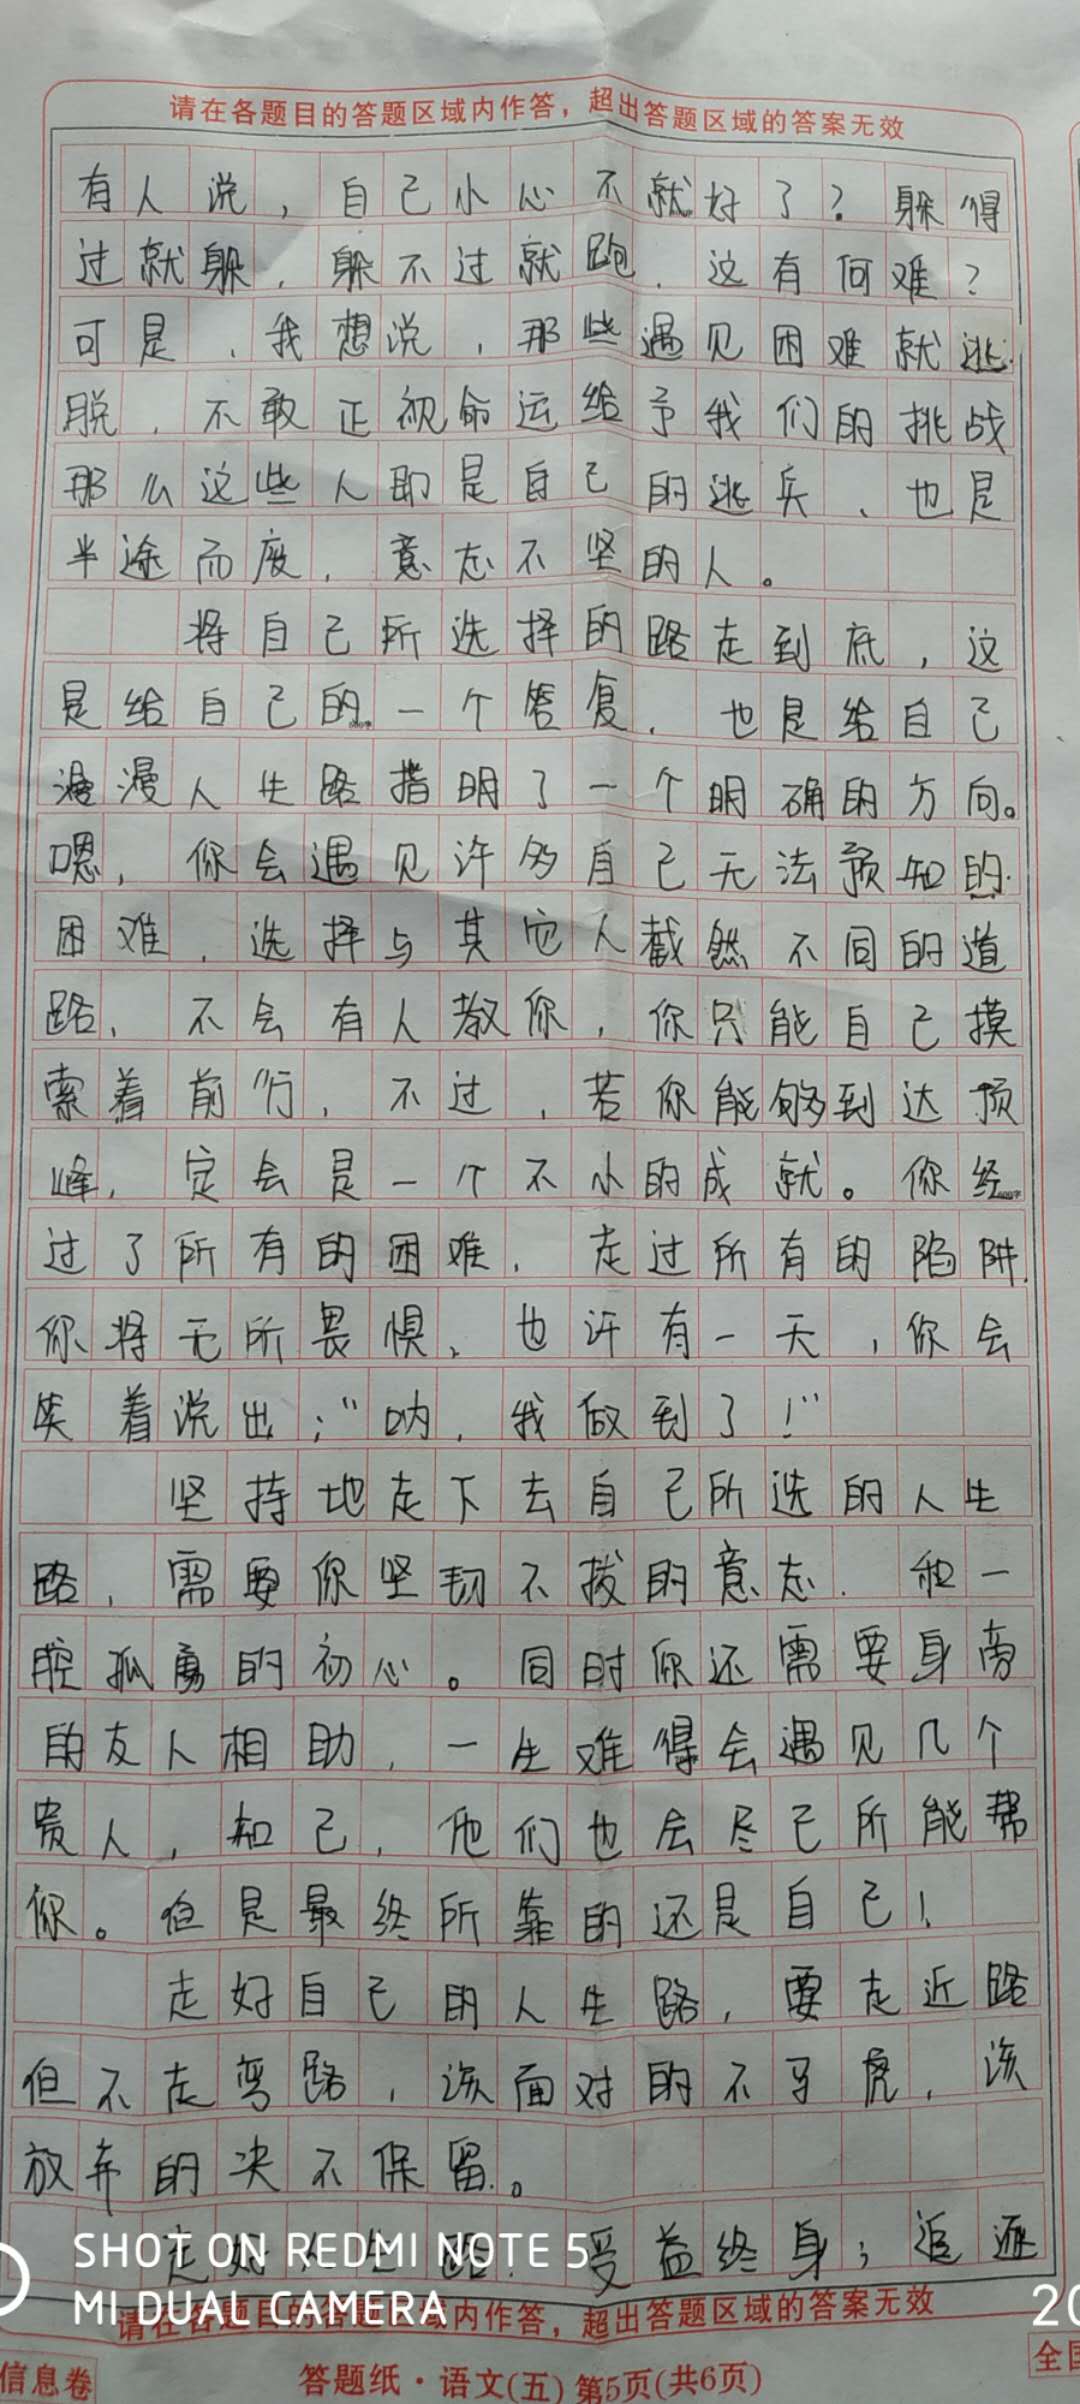 请在各题目的答题区域内作答，超出答题区域的答案无效
有人说，自己小心不就好了？躲得
过就躲，躲不过就跑，这有何难？
可是，我想说，那些遇见困难就逃
脱，不敢正视命运给予我们的挑战
那么这些人即是自己的逃兵、也是
半途而废，意志不坚的人。
将自己所选择的路走到底，这
是给自己的一个答复，也是给自己
漫漫人生路指明了一个明确的方向。
嗯，你会遇见许多自己无法预知的
困难，选择与其它人截然不同的道
路，不会有人教你，你只能自己摸
索着前行，不过，若你能够到达顶
峰，定会是一个不小的成就。你经
过了所有的困难，走过所有的陷阱，
你将无所畏惧，也许有一天，你会
笑着说出；“呐，我做到了！”
坚持地走下去自己所选的人生
路，需要你坚韧不拔的意志，和一
腔孤勇的初心。同时你还需要身旁
的友人相助，一生难得会遇见几个
贵人，知己，他们也会尽己所能帮
你。但是最终所靠的还是自己！
走好自己的人生路，要走近路
但不走弯路，该面对的不马虎，该
放弃的决不保留。
走好人生路，受益终身；追逐
SHOT ON REDMI NOTE 5
MI DUAL CAMERA
20
请在各题目的答题区域内作答，超出答题区域的答案无效
信息卷
答题纸·语文(五) 第5页(共6页)
全国